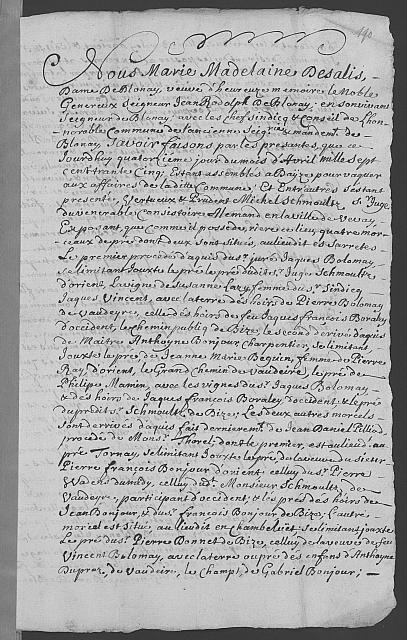 190
Nous Marie Madelaine Desalis,
Dame DeBlonay, veuve d'heureuse memoire le Noble
Genereux Seigneur Jean Rodolph DeBlonay; en son vivant
Seigneur de Blonay; avec les chefs sindicq & Conseil de l'hon-
norable Commune de l'ancienne Seigrie & mandemt. de
Blonay Savoir faisons par les presantes, que ce
Jourdhuy quatorzieme jour du mois d'Avril mille sept
cent trante Cinq; Estant assemblés à Baÿe pour vaquer
aux affaires de ladite Commune, Et Entr'autres s'estant
presenté, Vertueux & Prudent Michel Schmoultz, Sr. Juge
du venerable Consistoire Allemand en la ville de Vevay
Exposant, que comme il possede, riere ce lieu quatre mor-
ceaux de pré dont deux sont situés, au lieu dit es Sarretes
Le premier procedé d'aquis du Sr. juré Jaques Bolomay
se limitant Jouxte le pré le pré dudit Sr. Juge Schmoultz
d'orient, la vigne de Susanne femme du Sr. Sindicq
Jaques Vincent, avec la terre des hoirs de Pierre Bolomay
de Vaudeyre, celle des hoirs de feu Jaques François Boraley
d'occident, le chemin publiq de Bize, le second derivé d'aquis
de Maître Anthoyne Bonjour Charpentier, se limitant
Jouxte le pré de Jeanne Marie Beguin, femme de Pierre
Ray d'orient, le Grand Chemin de Vaudeire, le pré de
Philipe Mamin, avec les vignes du Sr. Jaques Bolomay
& des hoirs de Jaques François Boraley d'occident, & le pré
du predit Sr. Schmoult, de Bize, Les deux autres morcels
sont derivés d'aquis fait dernieremt. de Jean Daniel
procedé de Monsr. Thorel; dont le premier, est au lieu d. en
pré Tornay, se limitant Jouxte le pré de la veuve du sieur
Pierre François Bonjour d'orient celluy du Sr. Pierre
celluy dud. Monsieur Schmoultz, de
Vaudeyre, participant d'occident, & les prés des hoirs de
Jean Bonjour, & du Sr. François Bonjour de Bize, L'autre
morcel est situé, au lieu dit en Chambelliet, se limitant jouxte
Le pré du Sr. Pierre Bonnet de Bize, celluy de la veuve de feu
Vincent Bolomay, avec la terre ou pré des enfans d'Anthoyne
Dupraz, de Vaudeire, le Champt, de Gabriel Bonjour;